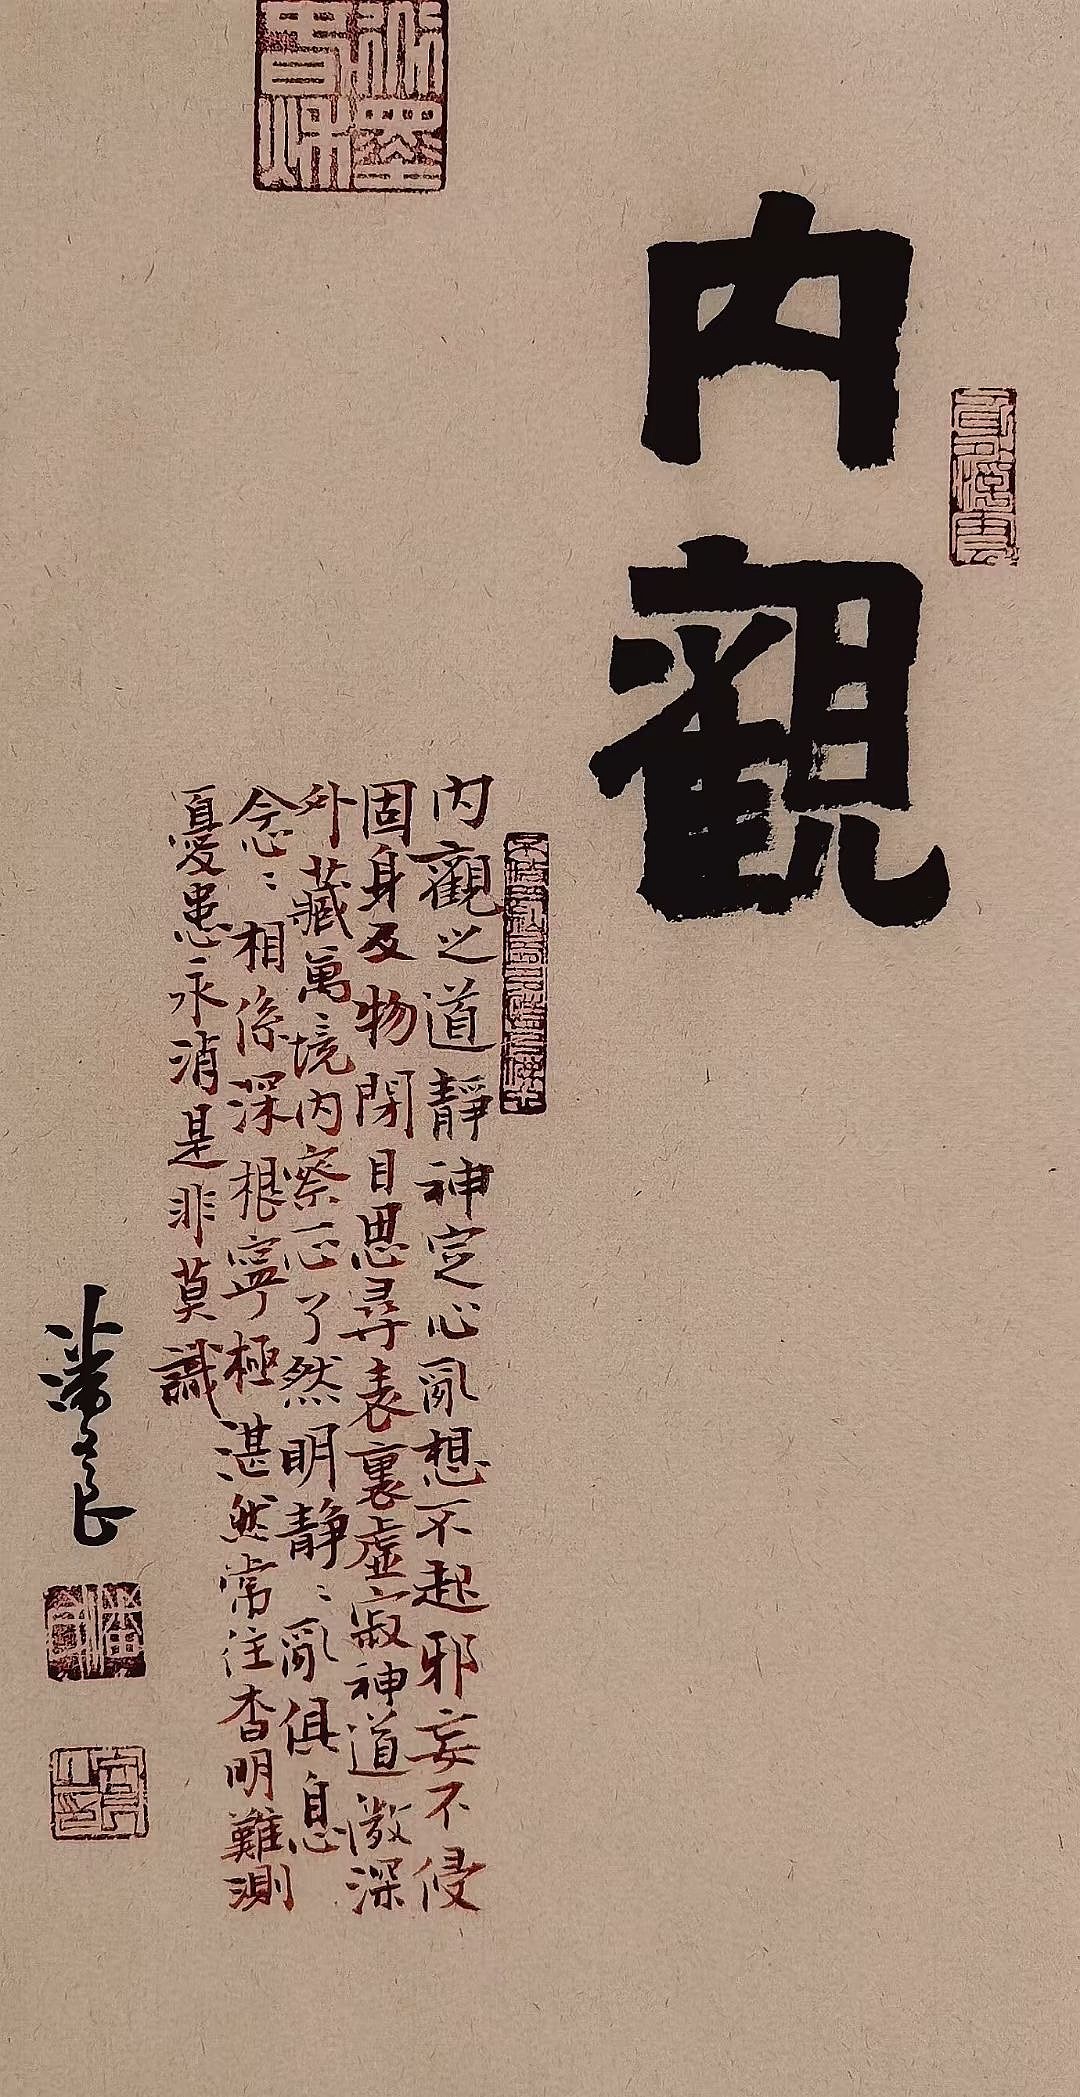 内觀
内觀之道靜神定心亂想不起邪妄不侵
固身及物閉目思尋表裏虛寂神道微深
外藏萬境内察一心了然明靜〻亂俱息
念〻相係深根寧極湛然常住杳明難測
憂患永消是非莫識